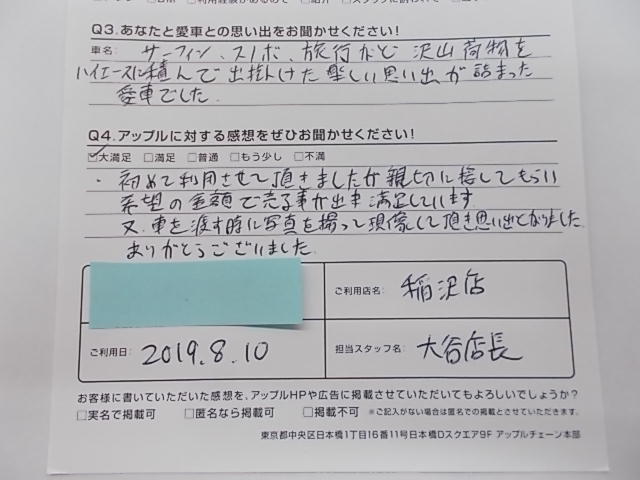 Q3.あなたと愛車との思い出をお聞かせください!
車名: サーフィン、スノボ、旅行など 沢山荷物を
ハイエースに積んで出掛けた楽しい思い出が詰まった
愛車でした。
Q4.アップルに対する感想をぜひお聞かせください!
☑大満足 □満足 □普通 □もう少し □不満
・初めて利用させて頂きましたが親切に接してもらい
希望の金額で売る事が出来満足しています
又、車を渡す時に写真を撮って現像して頂き思い出となりました
ありがとうございました。
ご利用店名: 稲沢店
ご利用日: 2019.8.10
担当スタッフ名: 大谷店長
お客様に書いていただいた感想を、アップルHPや広告に掲載させていただいてもよろしいでしょうか?
□実名で掲載可 □匿名なら掲載可 □掲載不可 ※ご記入がない場合は匿名での掲載とさせていただきます。
東京都中央区日本橋1丁目16番11号日本橋Dスクエア9F アップルチェーン本部